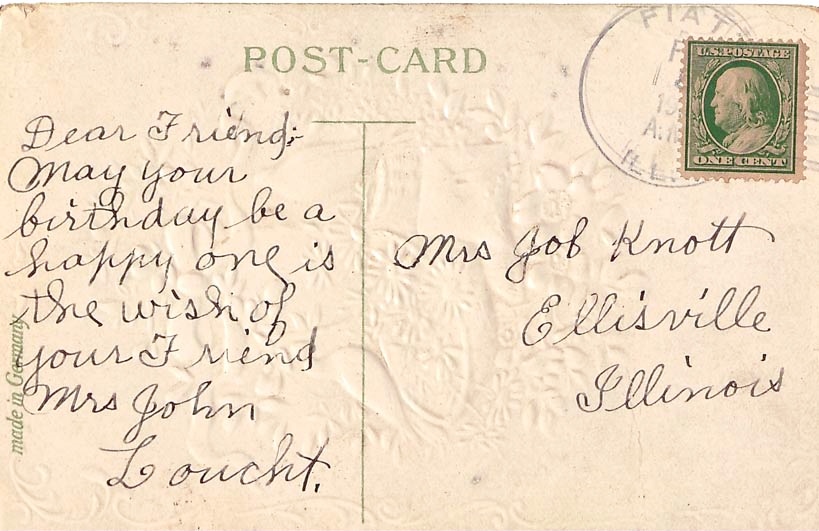 POST-CARD
FIAT
ILL.
U.S. POSTAGE
ONE CENT
Dear Friend:-
May your
birthday be a
happy one is
the wish of
your Friend
Mrs John
Loucht.
Mrs Job Knott
Ellisville
Illinois
made in Germany